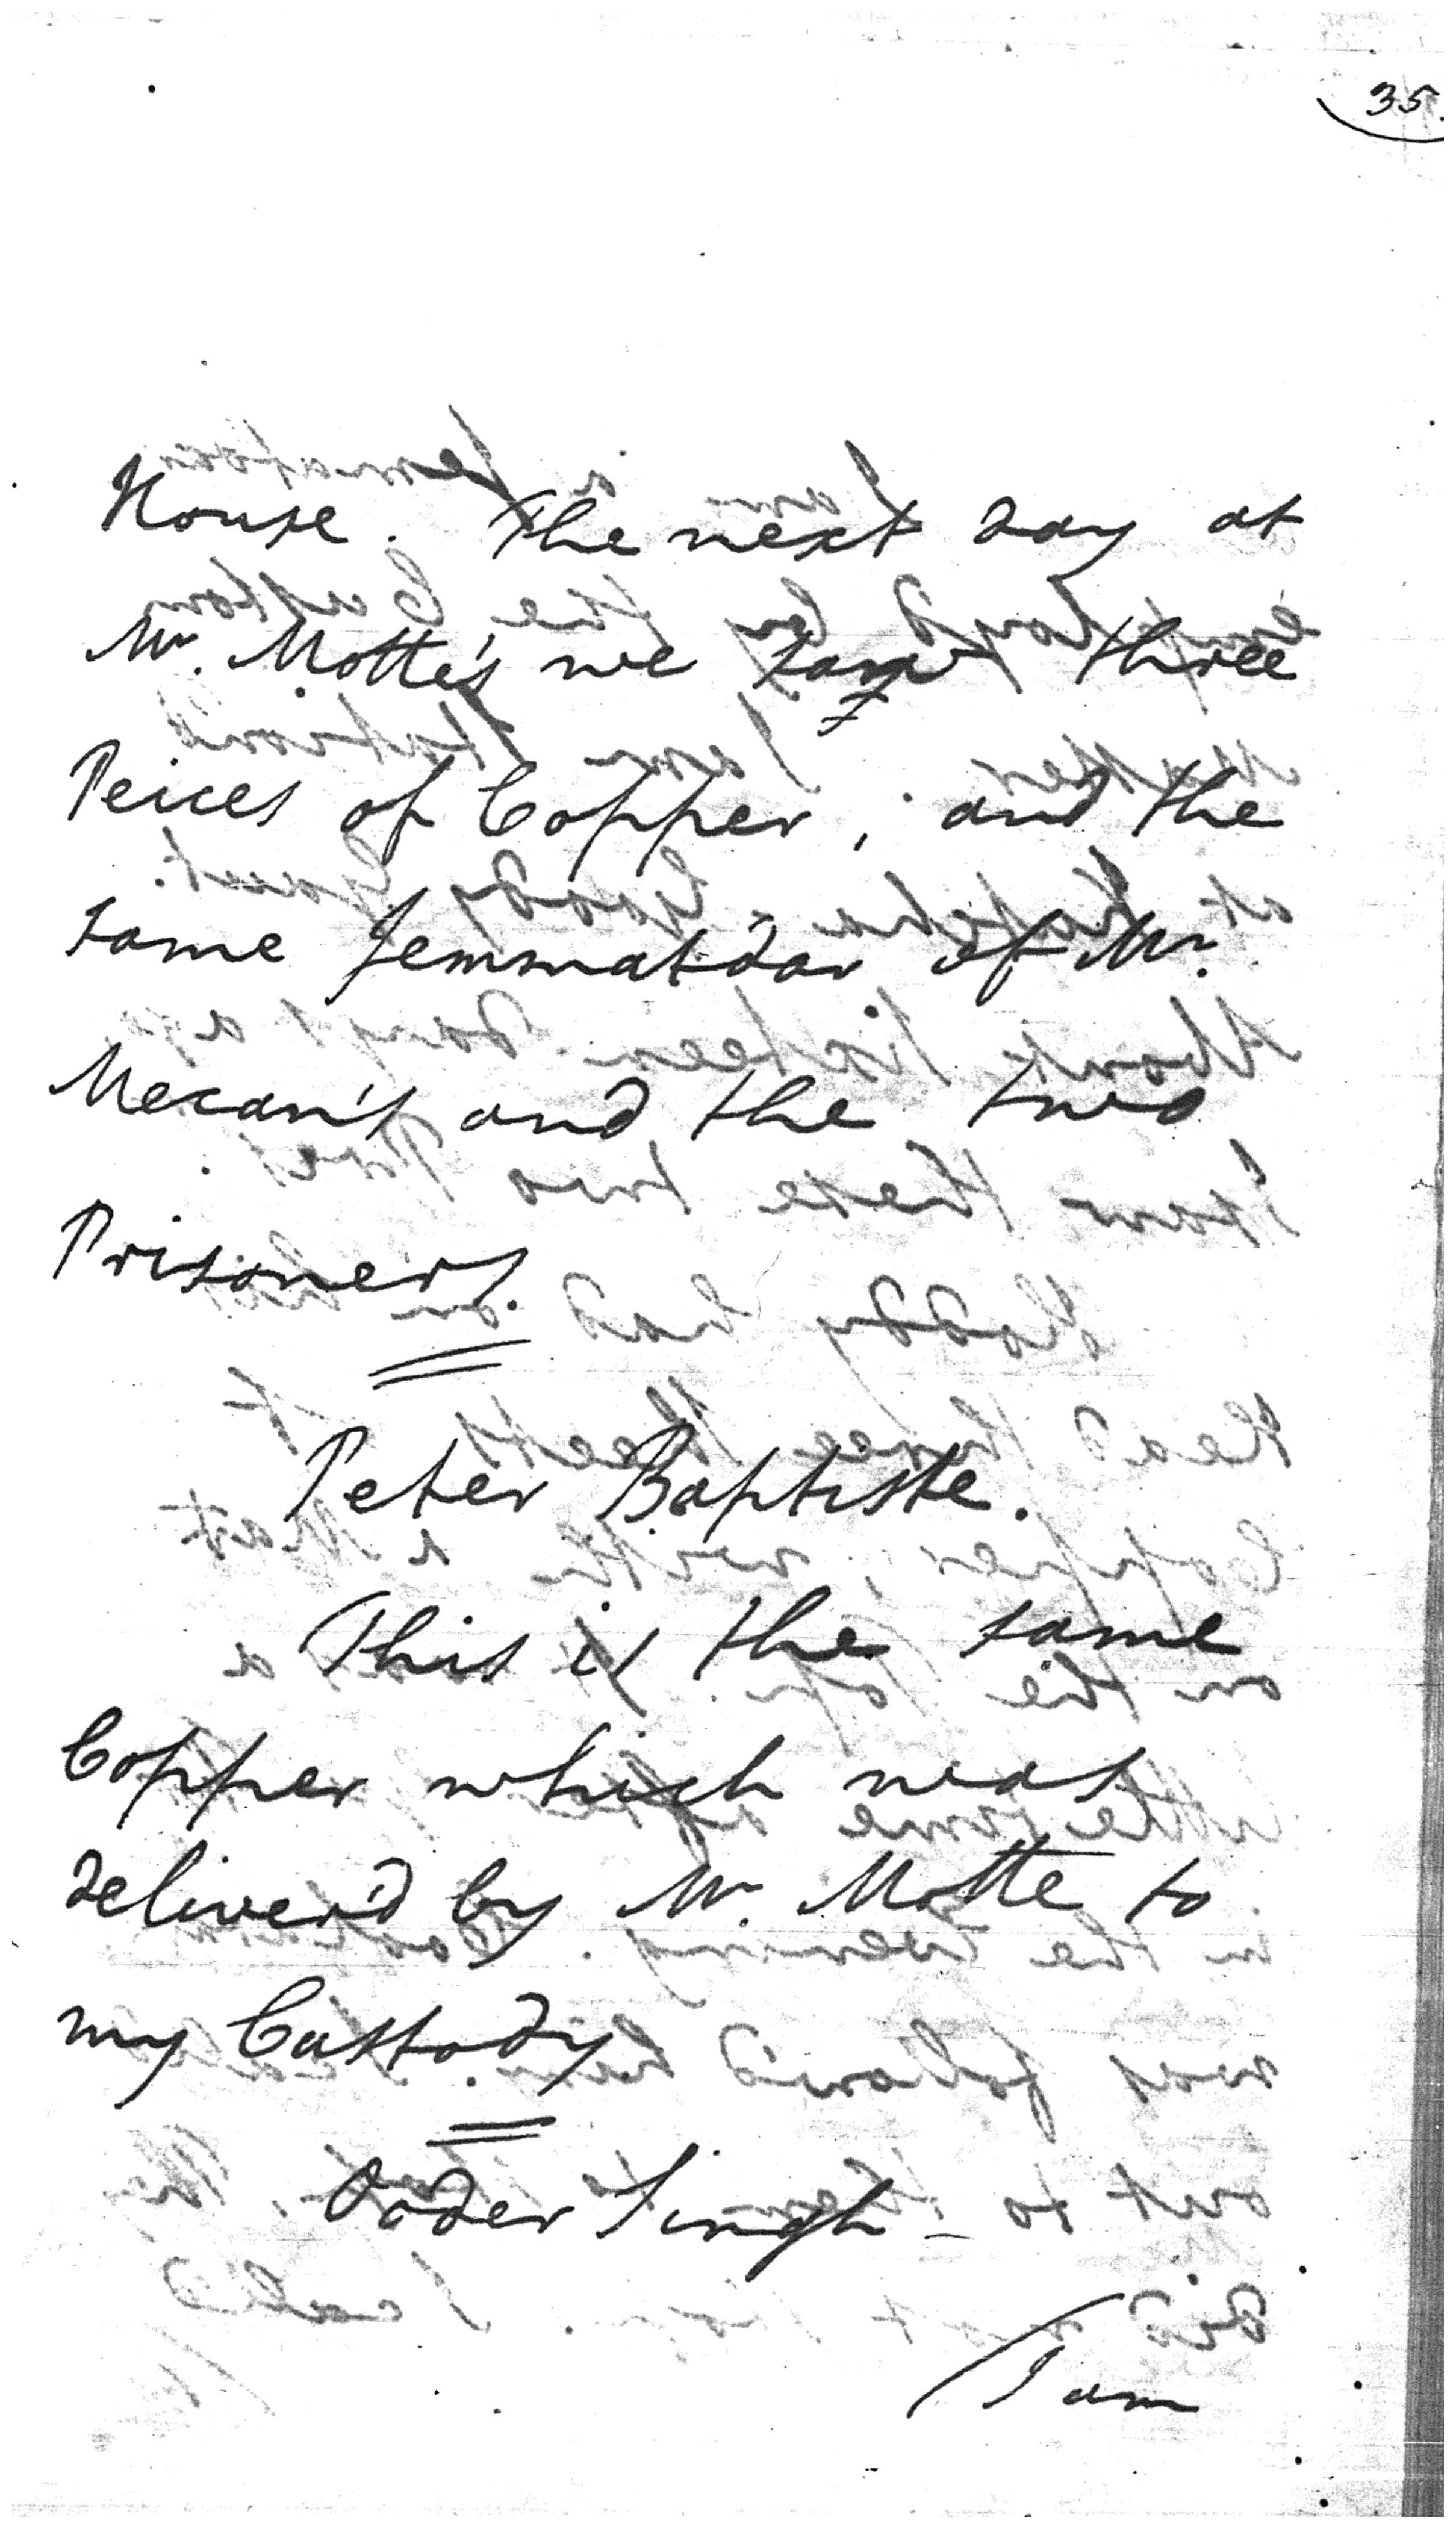 35.
House. The next day at
Mr. Motte's we saw three
Peices of Copper, and the
same Jemmatdar of Mr.
Mecan's and the two
Prisoners.
Peter Baptiste.
This is the same
Copper which was
deliver'd by Mr. Motte to
my Custody
Ooder Singh -
I am